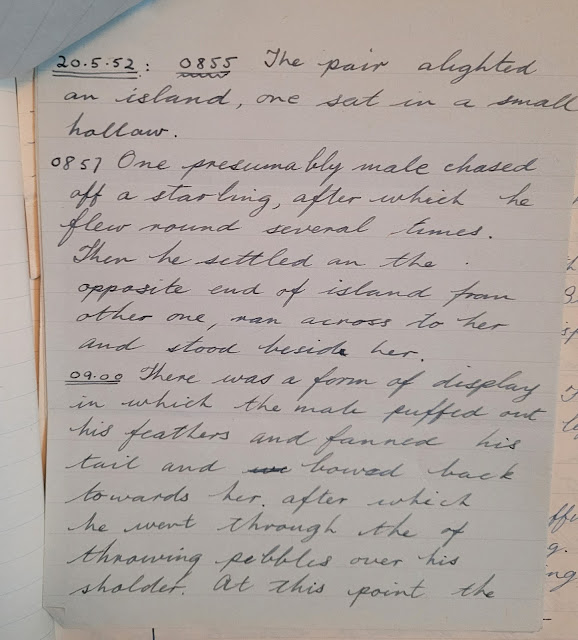 20.5.52: 0855 The pair alighted
on island, one sat in a small
hollow.
0857 One presumably male chased
off a starling, after which he
flew round several times.
Then he settled on the
opposite end of island from
other one, ran across to her
and stood beside her.
09.00 There was a form of display
in which the male puffed out
his feathers and fanned his
tail and bowed back
towards her. after which
he went through the of
throwing pebbles over his
sholder. At this point the